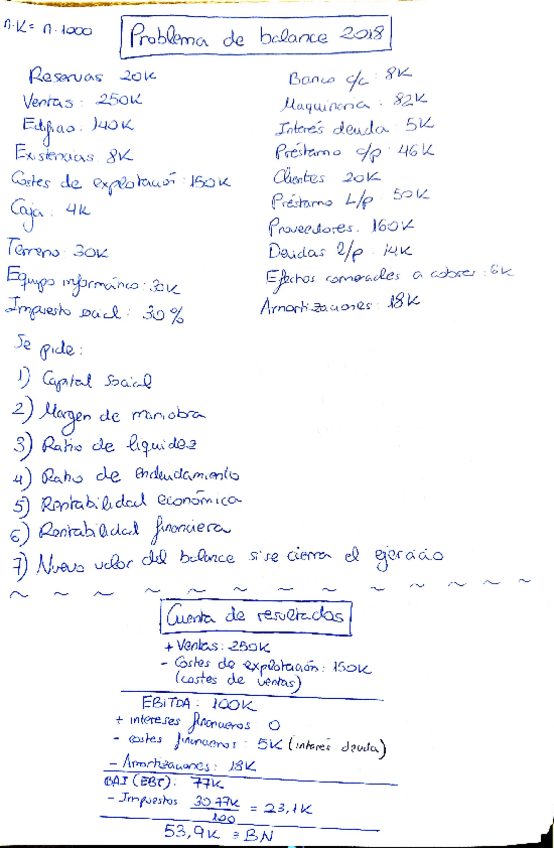 n.K = n.1000
Problema de balance 2018
Reservas 20K
Ventas: 250K
Edificio: 140K
Existencias 8K
Costes de explotación: 150K
Caja: 4K
Terreno: 30K
Equipo informático: 30K
Impuesto social: 30%
Banco c/c: 8K
Maquinaria: 82K
Interés deuda: 5K
Préstamo c/p: 46K
Clientes 20K
Préstamo L/p: 50K
Proveedores: 160K
Deudas l/p: 14K
Efectos comerciales a cobrar: 6K
Amortizaciones: 18K
Se pide:
1) Capital social
2) Margen de maniobra
3) Ratio de liquidez
4) Ratio de endeudamiento
5) Rentabilidad económica
6) Rentabilidad financiera
7) Nuevo valor del balance si se cierra el ejercicio
Cuenta de resultados
+ Ventas: 250K
- Costes de explotación: 150K
(costes de ventas)
EBITDA: 100K
+ intereses financieros: 0
- costes financieros: 5K (interés deuda)
- Amortizaciones: 18K
BAI (EBT): 77K
- Impuestos 30·77K/100 = 23,1K
53,9K = BN